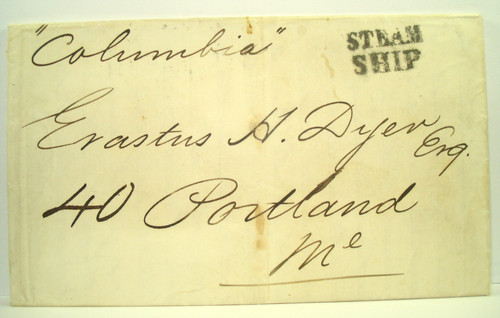 "Columbia"
STEAM
SHIP
Erastus H. Dyer
Esq.
40 Portland
Me